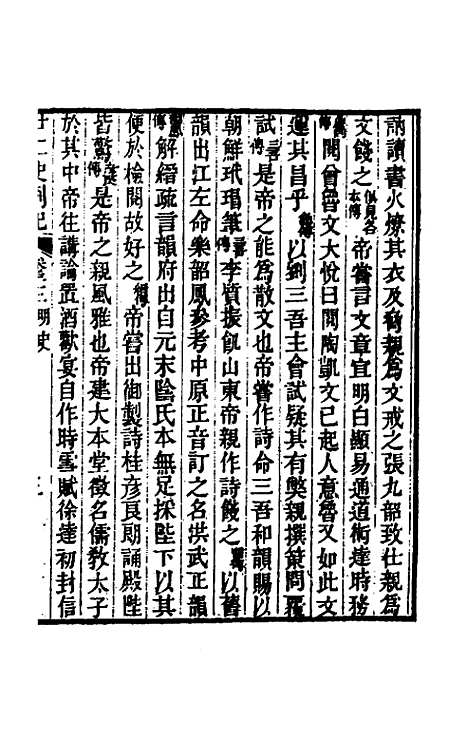 訥讀書火燎其衣及脅親爲文戒之張九韶致仕親爲
文餞之俱見各本傳帝嘗言文章宜明白顯易通道術達時務
閱曾魯文大悅曰閱陶凱文已起人意魯又如此文
運其昌乎以劉三吾主會試疑其有弊親撰策問覆
試是帝之能爲散文也帝嘗作詩命三吾和韻賜以
朝鮮玳瑁筆李質振飢山東帝親作詩餞之以舊
韻出江左命樂韶鳳參考中原正音訂之名洪武正韻
解縉疏言韻府出自元末陰氏本無足採陛下以其
便於檢閱故好之帝嘗出御製詩桂彥良朗誦殿陛
皆驚是帝之親風雅也帝建大本堂徵名儒敎太子
於其中帝往講論置酒歡宴自作時雪賦徐達初封信
廿二史劄記 卷三 明史